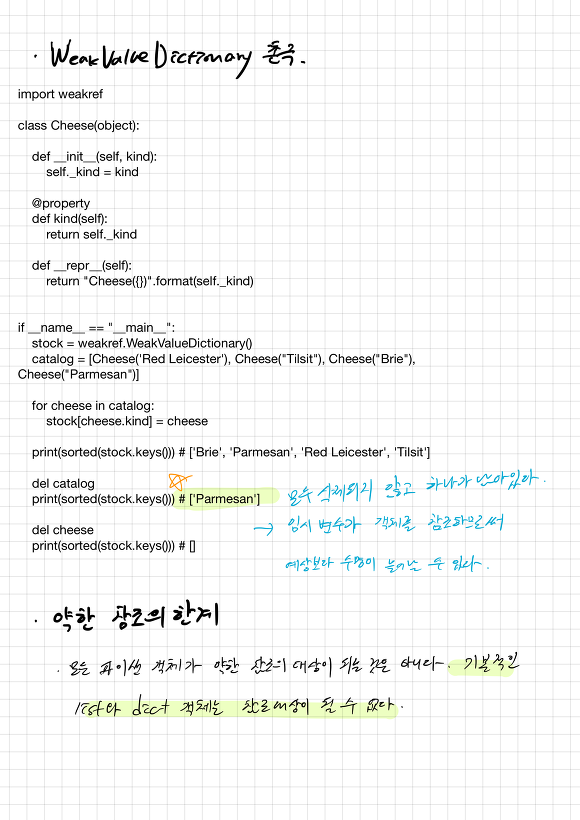 · WeakValueDictionary 촌극.
import weakref
class Cheese(object):
def __init__(self, kind):
self._kind = kind
@property
def kind(self):
return self._kind
def __repr__(self):
return "Cheese({})".format(self._kind)
if __name__ == "__main__":
stock = weakref.WeakValueDictionary()
catalog = [Cheese('Red Leicester'), Cheese("Tilsit"), Cheese("Brie"),
Cheese("Parmesan")]
for cheese in catalog:
stock[cheese.kind] = cheese
print(sorted(stock.keys())) # ['Brie', 'Parmesan', 'Red Leicester', 'Tilsit']
del catalog
print(sorted(stock.keys())) # ['Parmesan'] 모두 삭제되지 않고 하나가 남아있다.
→ 임시 변수가 객체를 참조하므로써
예상보다 수명이 늘어날 수 있다.
del cheese
print(sorted(stock.keys())) # []
· 약한 참조의 한계
· 모든 파이썬 객체가 약한 참조의 대상이 되는 것은 아니다. 기본적인
list와 dict 객체는 참조대상이 될 수 없다.